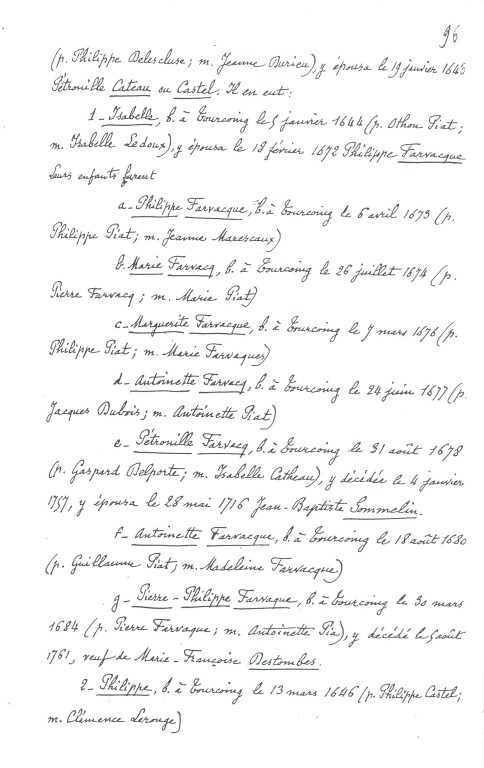 96
(p. Philippe Delescluse; m. Jeanne Durieu), y épousa le 19 janvier 1643
Pétronille Cateau ou Castel. Il en eut:
1 - Isabelle, b. à Tourcoing le 5 janvier 1644 (p. Othon Piat;
m. Isabelle Ledoux), y épousa le 18 février 1672 Philippe Farvacque
leurs enfants furent
a - Philippe Farvacque, b. à Tourcoing le 6 avril 1673 (p.
Philippe Piat; m. Jeanne Marescaux)
b. Marie Farvacq, b. à Tourcoing le 26 juillet 1674 (p.
Pierre Farvacq; m. Marie Piat)
c - Marguerite Farvacque, b. à Tourcoing le 7 mars 1676 (p.
Philippe Piat; m. Marie Farvaques)
d - Antoinette Farvacq, b. à Tourcoing le 24 juin 1677 (p.
Jacques Dubois; m. Antoinette Piat)
e - Pétronille Farvacq, b. à Tourcoing le 31 août 1678
(p. Gaspard Delporte; m. Isabelle Catheau), y décédée le 4 janvier
1757, y épousa le 28 mai 1716 Jean-Baptiste Sommelin.
f - Antoinette Farvacque, b. à Tourcoing le 18 août 1680
(p. Guillaume Piat; m. Madeleine Farvacque)
g - Pierre-Philippe Farvaque, b. à Tourcoing le 30 mars
1684 (p. Pierre Farvaque; m. Antoinette Pia), y décédé le 5 août
1761, veuf de Marie-Françoise Destombes.
2 - Philippe, b. à Tourcoing le 13 mars 1646 (p. Philippe Castel;
m. Clémence Lerouge)